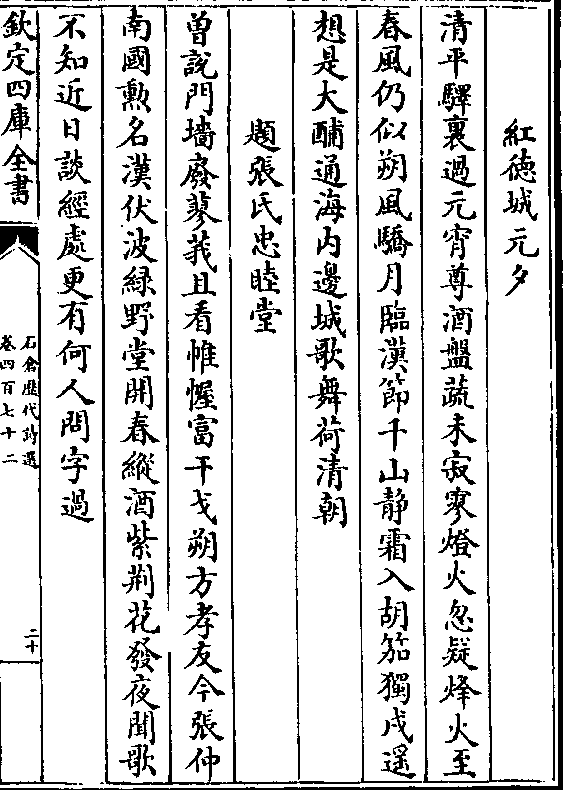 紅德城元夕
清平驛裏過元宵尊酒盤蔬未寂寥燈火忽疑烽火至
春風仍似朔風驕月臨漢節千山静霜入胡笳獨戍遥
想是大酺通海内邊城歌舞荷清朝
題張氏忠睦堂
曽說門墻廢蓼莪且看帷幄富干戈朔方孝友今張仲
南國勲名漢伏波緑野堂開春縱酒紫荆花發夜聞歌
不知近日談經處更有何人問字過
欽定四庫全書
石倉歴代詩選
卷四百七十二
二十